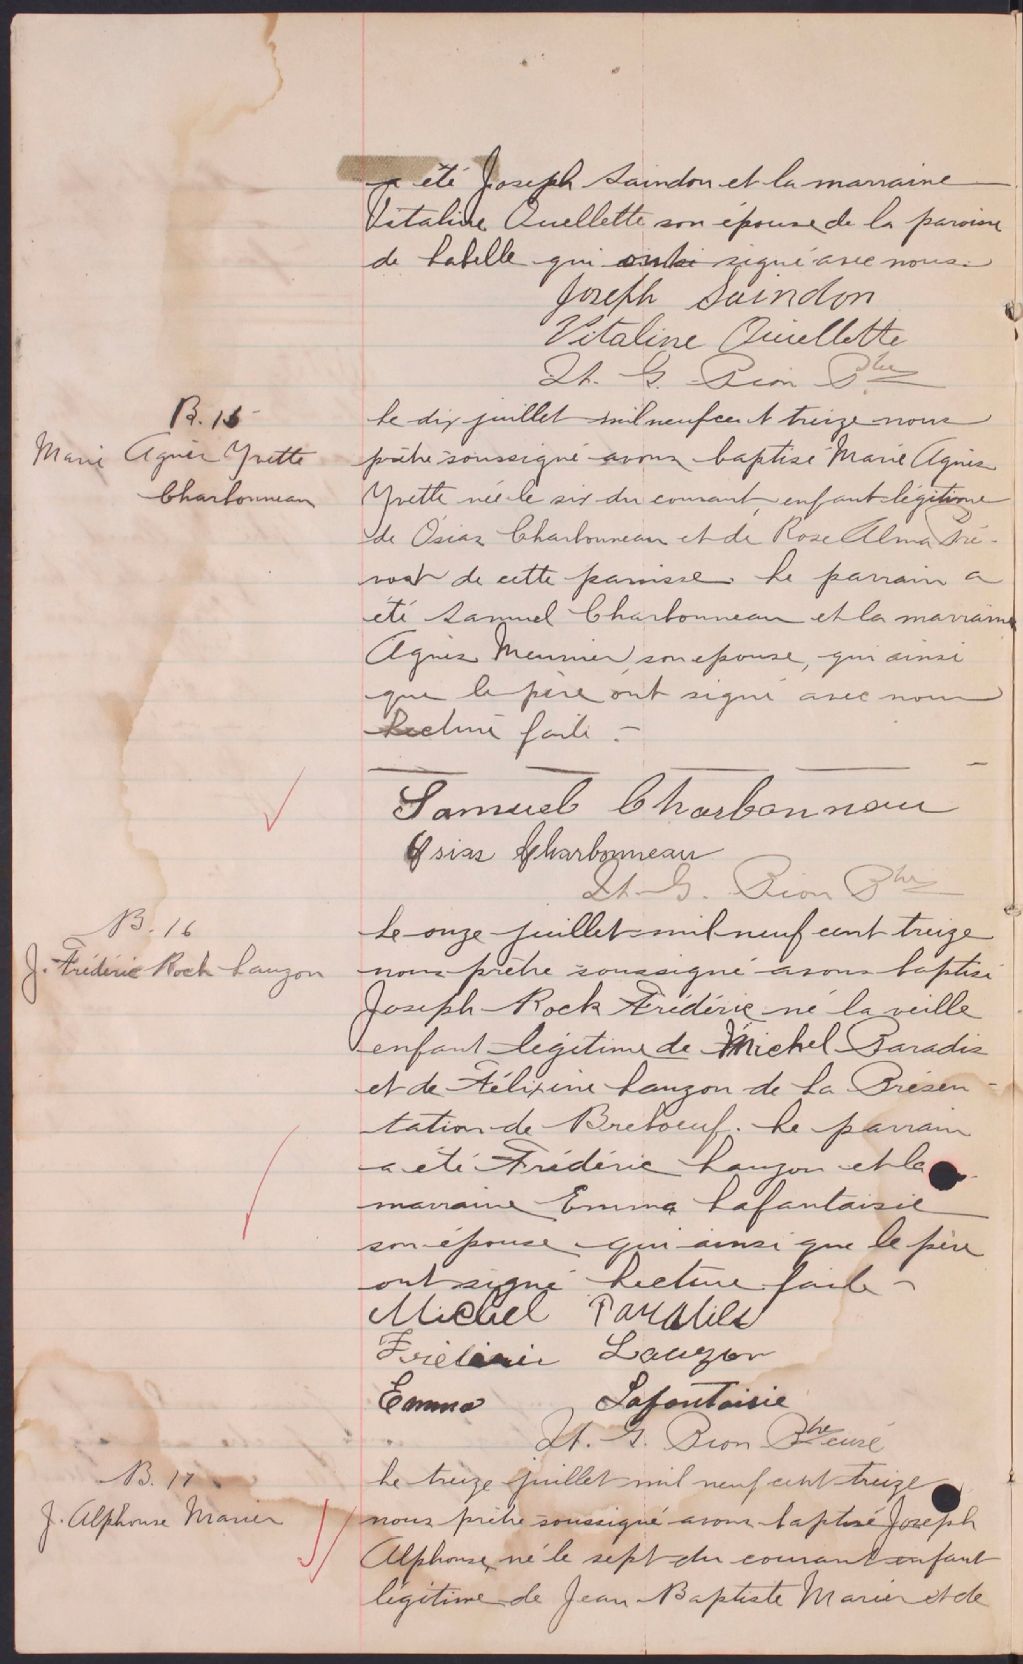 a été Joseph Saindon et la marraine
Vitaline Ouellette son épouse de la paroisse
de Labelle qui signé avec nous.
Joseph Saindon
Vitaline Ouellette
G. Pion Ptre
B. 15
Marie Agnès Yvette
Charbonneau
Le dix juillet mil neuf cent treize nous
prêtre soussigné avons baptisé Marie Agnès
Yvette née le six du courant, enfant légitime
de Osias Charbonneau et de Rose Alma Pré-
vost de cette paroisse. Le parrain a
été Samuel Charbonneau et la marraine
Agnès Meunier son épouse, qui ainsi
que le père ont signé avec nous
Lecture faite. -
Samuel Charbonneau
Osias Charbonneau
G. Pion Ptre
B. 16
J. Frédéric Rock Lauzon
Le onze juillet mil neuf cent treize
nous prêtre soussigné avons baptisé
Joseph Rock Frédéric né la veille
enfant légitime de Michel Paradis
et de Félixine Lauzon de La Présen-
tation de Breboeuf. Le parrain
a été Frédéric Lauzon et la
marraine Emma Lafantaisie
son épouse qui ainsi que le père
ont signé Lecture faite -
Michel Paradis
Frédéric Lauzon
Emma Lafantaisie
G. Pion Ptre curé
B. 17
J. Alphonse Marier
Le treize juillet mil neuf cent treize
nous prêtre soussigné avons baptisé Joseph
Alphonse, né le sept du courant enfant
légitime de Jean-Baptiste Marier et de